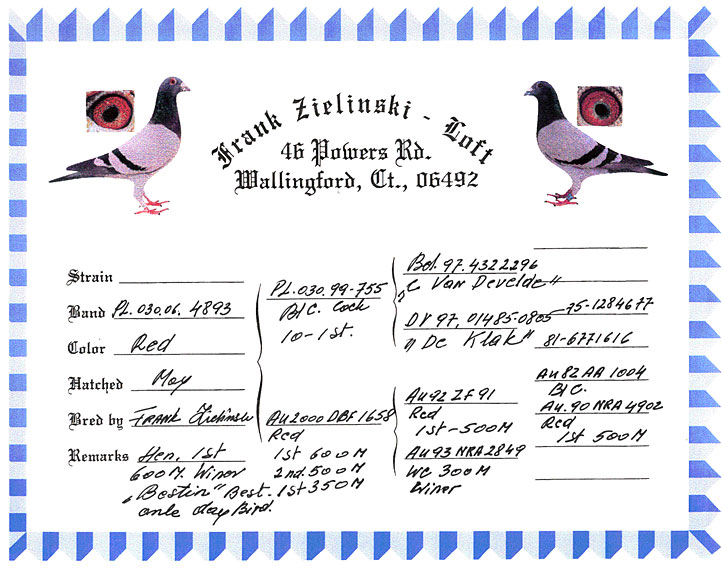 Frank Zielinski - Loft
46 Powers Rd.
Wallingford, Ct., 06492
Strain
Band PL.030.06. 4893
Color Red
Hatched May
Bred by FRANK Zielinski
Remarks Hen, 1st
600 M. Winer
"Bestin" Best.
onle day Bird.
PL.030.99-755
BlC. Cock
10-1st.
AU2000 DBF 1658
Red
1st 600 M
2nd. 500 M
1st 350 M
Bel. 97.4322296
"C Van Develde"
DV 97, 01485-0805
"De Klak"
AU92 ZF 91
Red
1st-500M
AU93 NRA 2849
WC 300M
Winer
75-1284677
81-6771616
AU82 AA 1004
BlC.
AU.90 NRA 4902
Red
1st 500M